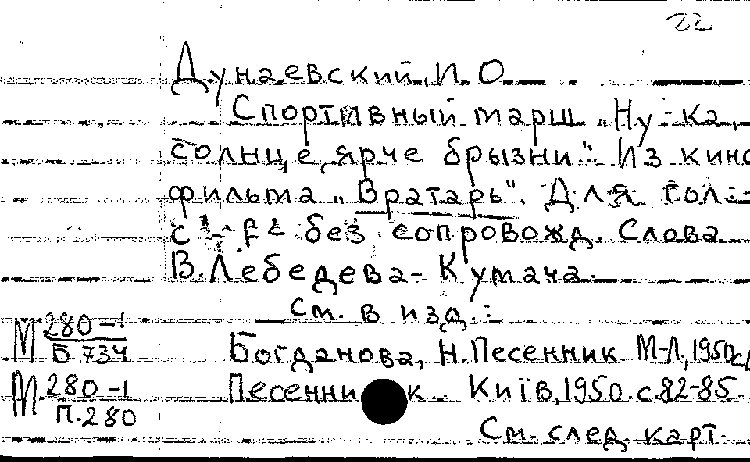 22
Дунаевский, И. О
Спортивный марш „Ну-ка,
солнце, ярче брызни". Из кино
фильма „Вратарь". Для гол.
c¹ - f² без сопровожд. Слова
В. Лебедева-Кумача.
См. в изд.:
М 280-1 Богданова, Н. Песенник М-Л, 1950,
Б. 734
М. 280-1 Песенник. Київ, 1950. с. 82-85.
П. 280
См. след. карт.